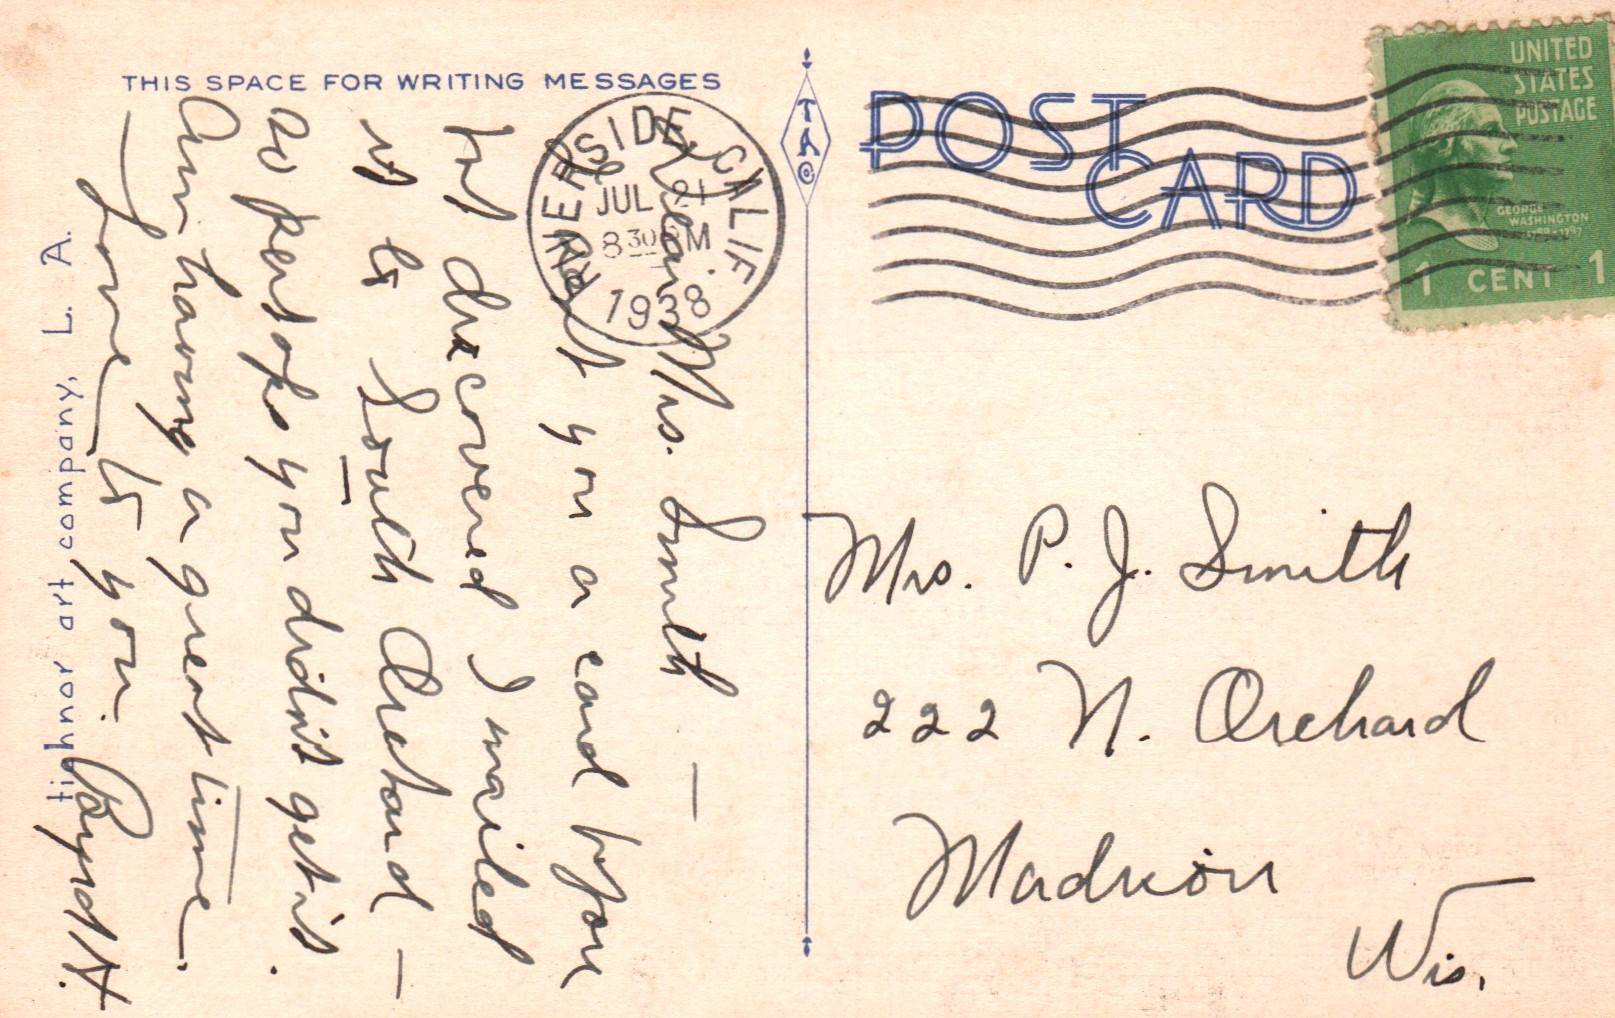 THIS SPACE FOR WRITING MESSAGES
Dear Mrs. Smith —
I sent you a card before
but discovered I mailed
it to South Orchard —
so perhaps you didn't get it.
Am having a great time.
— Love to you.
tichnor art company, L. A.
TAC
POST
CARD
RIVERSIDE, CALIF
JUL 21
8 30 PM
1938
UNITED
STATES
POSTAGE
GEORGE
WASHINGTON
1789-1797
1 CENT 1
Mrs. P. J. Smith
222 N. Orchard
Madison
Wis.